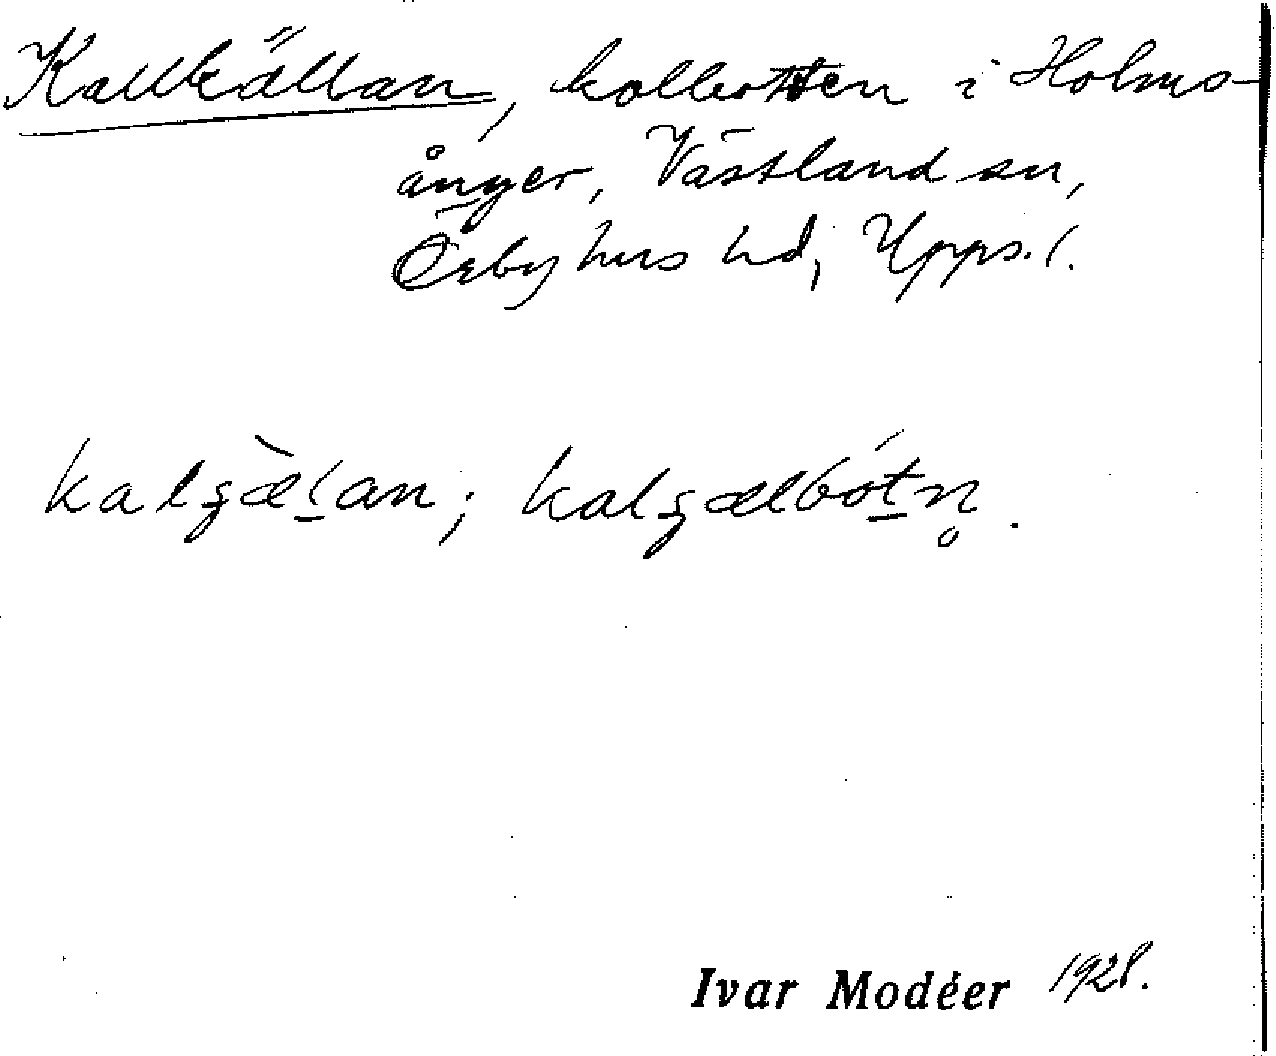 Kallkällan, kolbotten i Holms-
ånger, Västland sn,
Örbyhus hd, Upps. l.
kalʂæ̀l̠an; kalʂælbót̠n̥.
Ivar Modéer 1928.